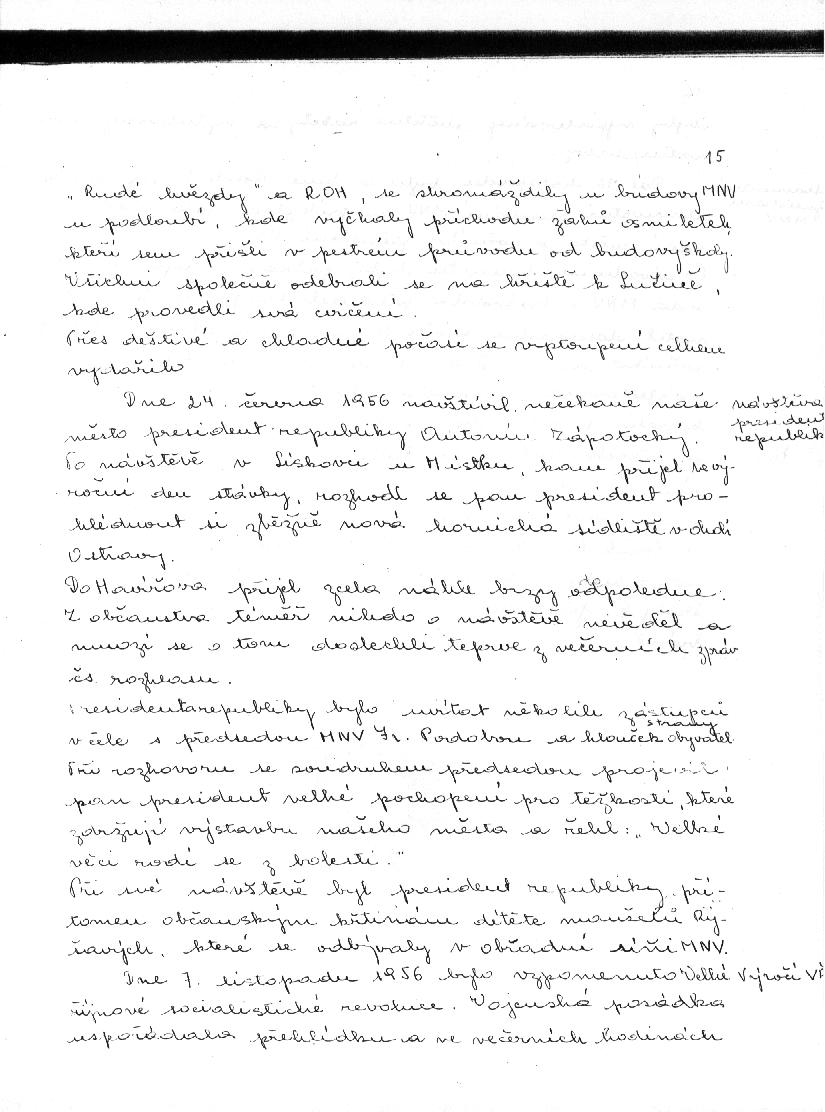 15
„Rudé hvězdy" a ROH, se shromáždily u budovy MNV
u podloubí, kde vyčkaly příchodu žáků osmiletek,
kteří sem přišli v pestrém průvodu od budovy školy.
Všichni společně odebrali se na hřiště k Lučině,
kde provedli svá cvičení.
Přes deštivé a chladné počasí se vystoupení celkem
vydařilo
Dne 24. června 1956 navštívil nečekaně naše návštěva
president
město president republiky Antonín Zápotocký. republik
Po návštěvě v Lískovci u Místku, kam přijel ve vý-
roční den stávky, rozhodl se pan president pro-
hlédnout si zběžně nová hornická sídliště v okolí
Ostravy.
Do Havířova přijel zcela náhle brzy odpoledne.
Z občanstva téměř nikdo o návštěvě nevěděl a
mnozí se o tom doslechli teprve z večerních zpráv
čs. rozhlasu.
Presidenta republiky bylo uvítat několik zástupců
strany
v čele s předsedou MNV Fr. Podobou a hlouček obyvatel.
Při rozhovoru se soudruhem předsedou projevil
pan president velké pochopení pro těžkosti, které
zdržují výstavbu našeho města a řekl: „Velké
věci rodí se z bolesti."
Při své návštěvě byl president republiky pří-
tomen občanským křtinám dítěte manželů Rý-
šavých, které se odbývaly v obřadní síni MNV.
Dne 7. listopadu 1956 bylo vzpomenuto Velké Výročí VŘ
říjnové socialistické revoluce. Vojenská posádka
uspořádala přehlídku a ve večerních hodinách